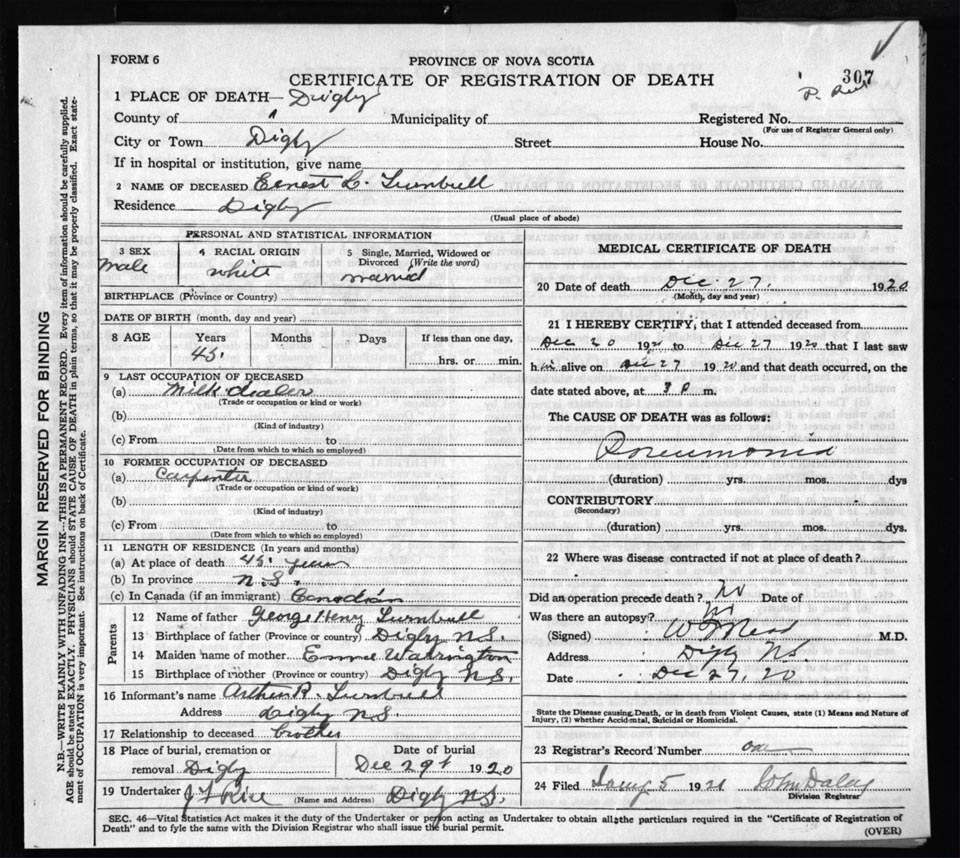 FORM 6
PROVINCE OF NOVA SCOTIA
CERTIFICATE OF REGISTRATION OF DEATH
307
1 PLACE OF DEATH— Digby
County of Municipality of Registered No.
(For use of Registrar General only)
City or Town Digby Street House No.
If in hospital or institution, give name
2 NAME OF DECEASED Ernest L. Turnbull
Residence Digby
(Usual place of abode)
PERSONAL AND STATISTICAL INFORMATION
3 SEX 4 RACIAL ORIGIN 5 Single, Married, Widowed or
Divorced (Write the word)
Male white married
BIRTHPLACE (Province or Country)
DATE OF BIRTH (month, day and year)
8 AGE Years Months Days If less than one day,
45. hrs. or min.
9 LAST OCCUPATION OF DECEASED
(a) Milk dealer
(Trade or occupation or kind or work)
(b)
(Kind of industry)
(c) From to
(Date from which to which so employed)
10 FORMER OCCUPATION OF DECEASED
(a) Carpenter
(Trade or occupation or kind of work)
(b)
(Kind of industry)
(c) From to
(Date from which to which so employed)
11 LENGTH OF RESIDENCE (In years and months)
(a) At place of death 45. years
(b) In province N.S.
(c) In Canada (if an immigrant) Canadian
Parents
12 Name of father George Henry Turnbull
13 Birthplace of father (Province or country) Digby N.S.
14 Maiden name of mother Emma Warrington
15 Birthplace of mother (Province or country) Digby N.S.
16 Informant's name Arthur R. Turnbull
Address Digby N.S.
17 Relationship to deceased brother
18 Place of burial, cremation or Date of burial
removal Digby Dec 29th 1920
19 Undertaker J F Rice (Name and Address) Digby N.S.
MEDICAL CERTIFICATE OF DEATH
20 Date of death Dec. 27. 1920
(Month, day and year)
21 I HEREBY CERTIFY, that I attended deceased from
Dec 20 1920 to Dec 27 1920 that I last saw
him alive on Dec 27 1920 and that death occurred, on the
date stated above, at m.
The CAUSE OF DEATH was as follows:
Pneumonia
(duration) yrs. mos. dys
CONTRIBUTORY
(Secondary)
(duration) yrs. mos. dys.
22 Where was disease contracted if not at place of death?
Did an operation precede death? No Date of
Was there an autopsy? No
(Signed) M.D.
Address Digby NS
Date Dec 27, 20
State the Disease causing Death, or in death from Violent Causes, state (1) Means and Nature of
Injury, (2) whether Accidental, Suicidal or Homicidal.
23 Registrar's Record Number
24 Filed Jany 5 1921 John Daley
Division Registrar
SEC. 46—Vital Statistics Act makes it the duty of the Undertaker or person acting as Undertaker to obtain all the particulars required in the "Certificate of Registration of
Death" and to fyle the same with the Division Registrar who shall issue the burial permit.
(OVER)
MARGIN RESERVED FOR BINDING
N.B.—WRITE PLAINLY WITH UNFADING INK—THIS IS A PERMANENT RECORD. Every item of information should be carefully supplied.
AGE should be stated EXACTLY. PHYSICIANS should STATE CAUSE OF DEATH in plain terms, so that it may be properly classified. Exact state-
ment of OCCUPATION is very important. See instructions on back of Certificate.